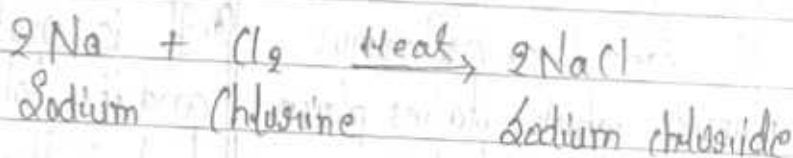 2Na + Cl2 Heat→ 2NaCl
Sodium Chlorine Sodium chloride